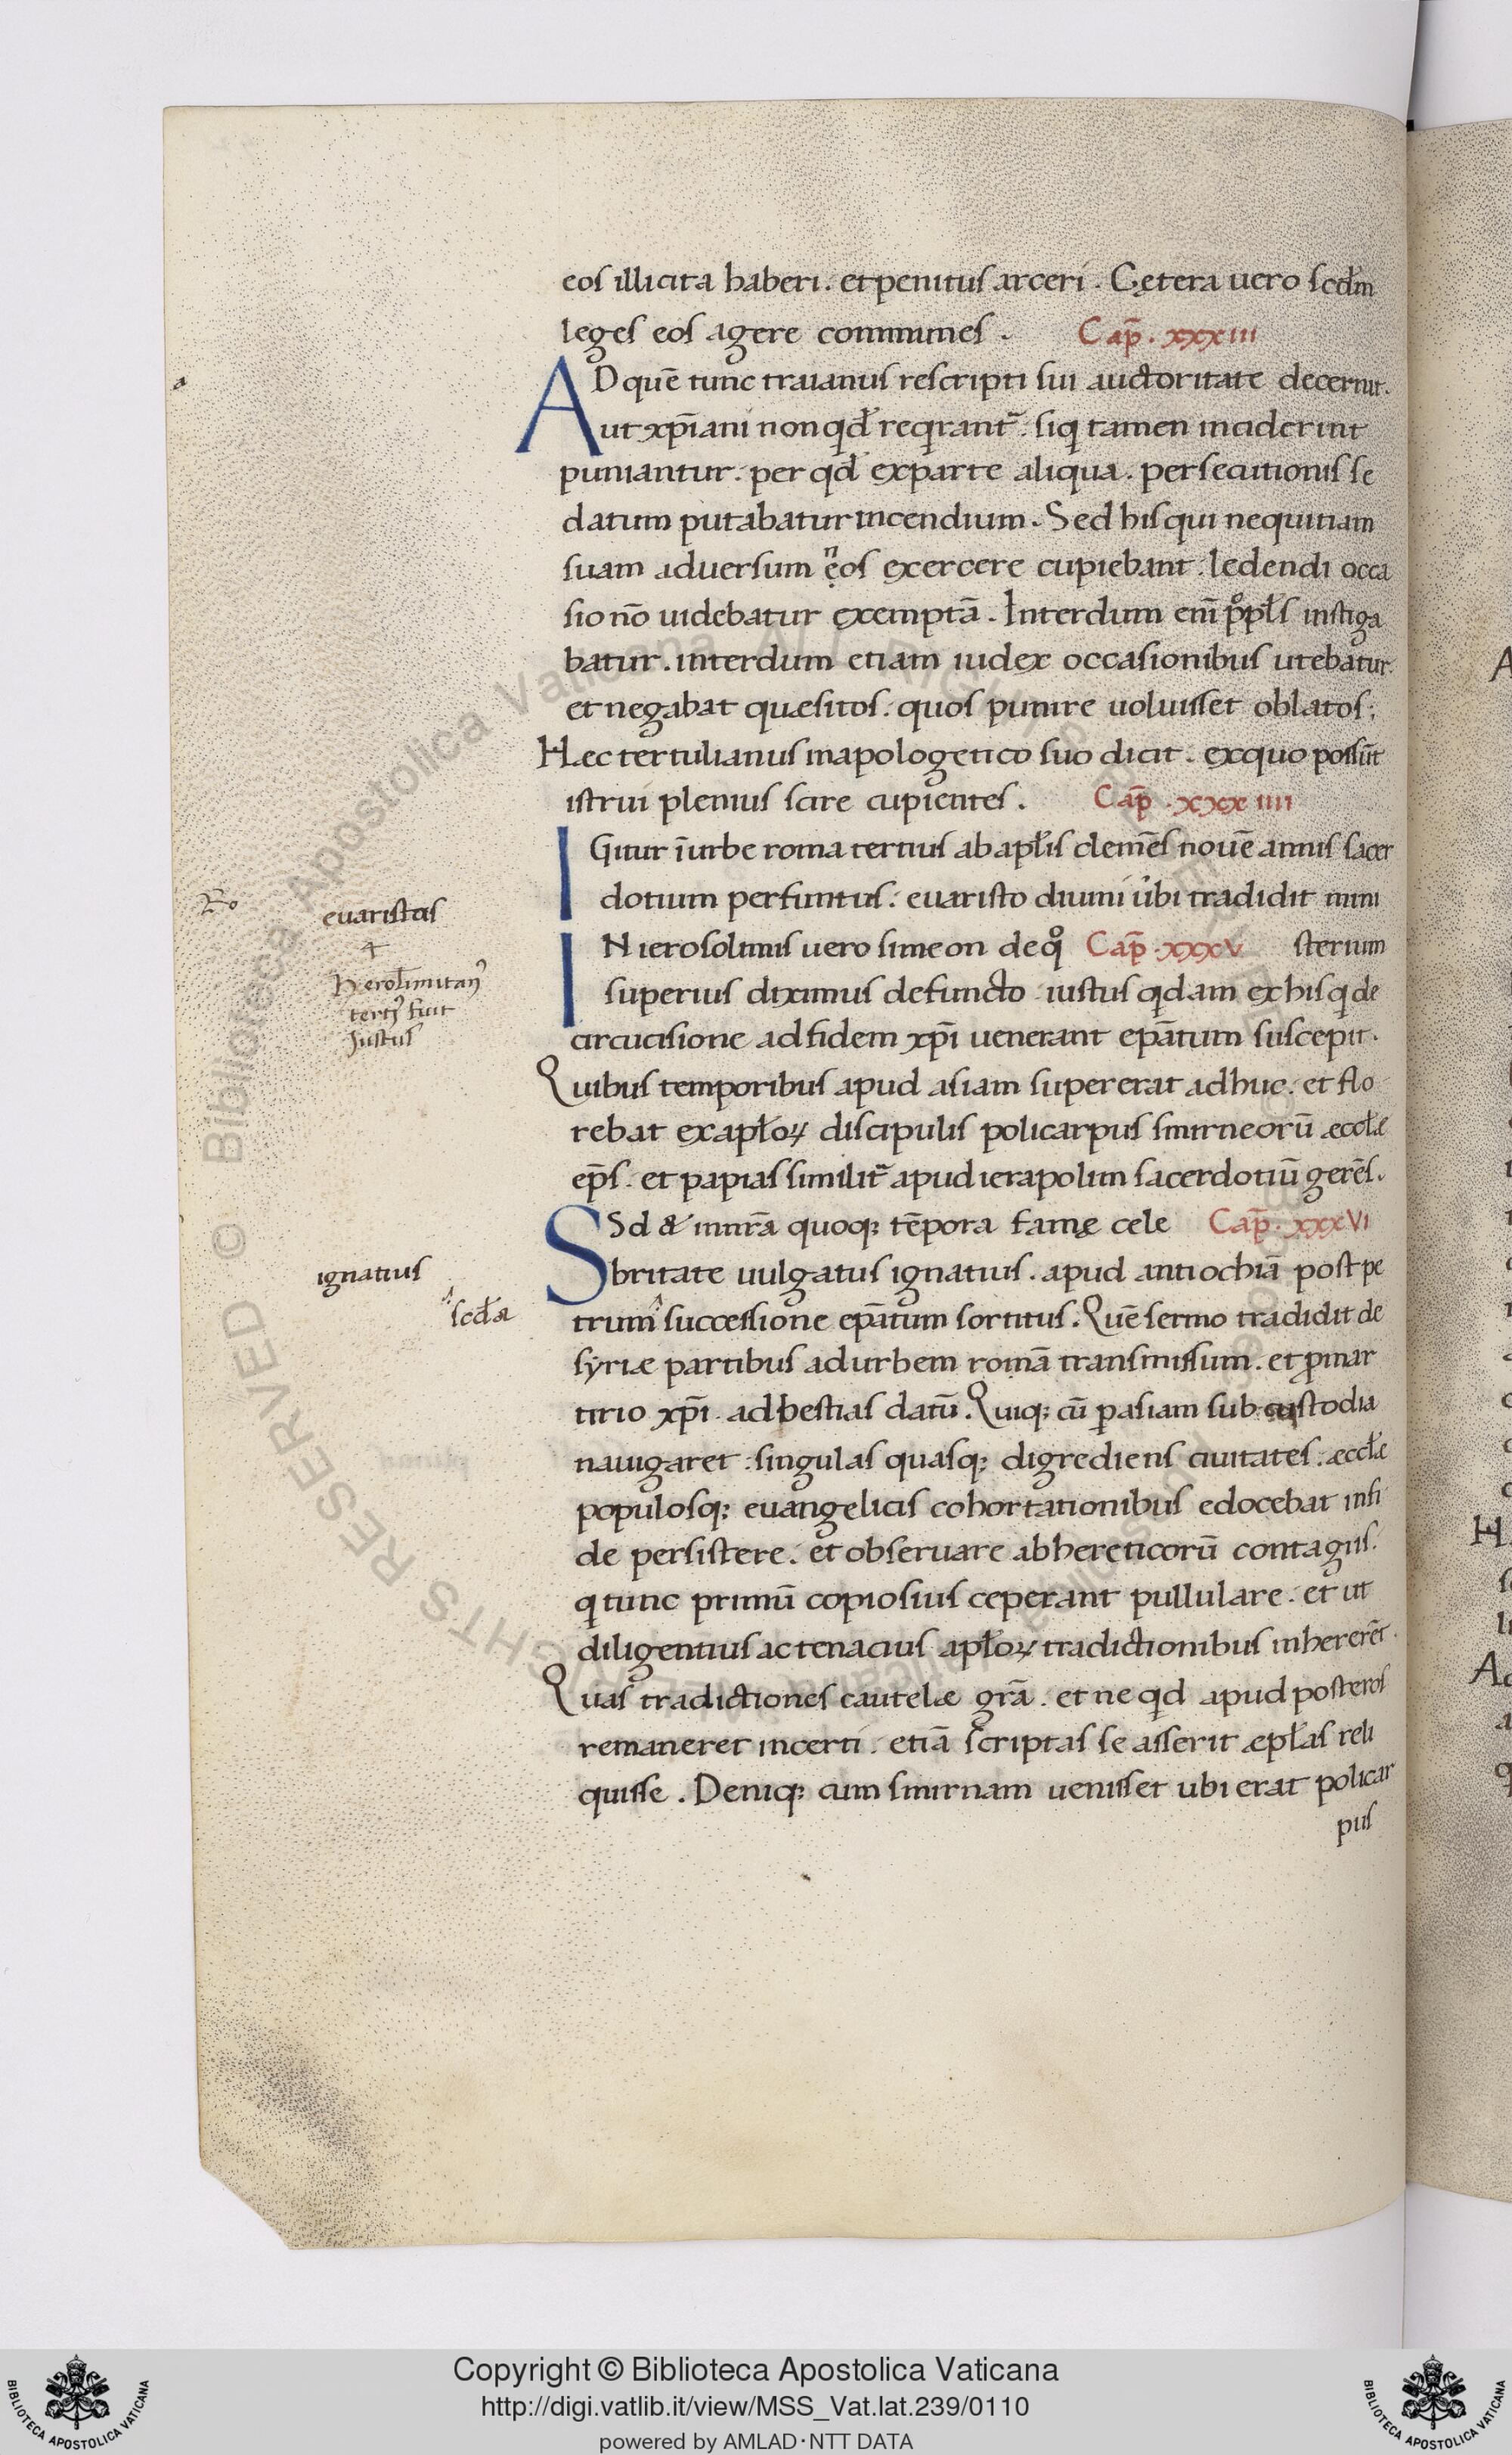 eos illicita haberi. et penitus arceri. Cętera uero scđm
leges eos agere communes. Cap̄. xxxiii
AD quē tunc traianus rescripti sui auctoritate decernit.
ut xp̄iani non qđ reqirant̄. siq tamen inciderint
puniantur. per qđ ex parte aliqua. persecutionis se
datum putabatur incendium. Sed his qui nequitiam
suam aduersum ṇeos exercere cupiebant. ledendi occa
sio nō uidebatur exemptā. Interdum enī p̊ pl̄s instiga
batur. interdum etiam iudex occasionibus utebatur.
et negabat quæsitos. quos punire uoluisset oblatos;
Hec tertulianus in apologetico suo dicit. ex quo possūt
istrui plenius scire cupientes. Cap̄. xxxiiii
IGitur ī urbe roma tertius ab apl̄is clemēs nouē annis sacer
dotium perfuntus. euaristo diuini u̇bi tradidit mini
IN ierosolimis uero simeon de qo Cap̄. xxxv sterium
superius diximus defuncto iustus qdam ex his q de
circucisione ad fidem xp̄i uenerant ep̄atum suscepit.
Quibus temporibus apud asiam supererat adhuc. et flo
rebat ex apl̄oꝝ discipulis policarpus smirneorū æccl̄æ
ep̄s. et papias similit̄ apud ierapolim sacerdotiū gerēs.
SSd & in nrā quoq; tēpora famę cele Cap̄. xxxvi
britate uulgatus ignatius. apud antiochiā post pe
trum successione ep̄atum sortitus. Quē sermo tradidit de
syriæ partibus ad urbem romā transmissum. et ꝓ mar
tirio xp̄i. ad bestias datū. Quiq; cū ꝑ asiam sub custodia
nauigaret. singulas quasq; digrediens ciuitates. æccl̄æ
populosq; euangelicis cohortationibus edocebat in fi
de persistere. et obseruare ab hereticorū contagiis.
q tunc primū copiosius ceperant pullulare. et ut
diligentius ac tenacius apl̄oꝝ tradictionibus inhererēt.
Quas tradictiones cautelæ grā. et ne qd apud posteros
remaneret incerti. etiā scriptas se asserit æpl̄as reli
quisse. Deniq; cum smirnam uenisset ubi erat policar
pus
a
Ro
euaristus
4
Hierosl̄imitanꝰ
tertꝰ fuit
Justus
ignatius
scđa
© Biblioteca Apostolica Vaticana
Copyright © Biblioteca Apostolica Vaticana
http://digi.vatlib.it/view/MSS_Vat.lat.239/0110
powered by AMLAD·NTT DATA
BIBLIOTECA APOSTOLICA VATICANA
BIBLIOTECA APOSTOLICA VATICANA